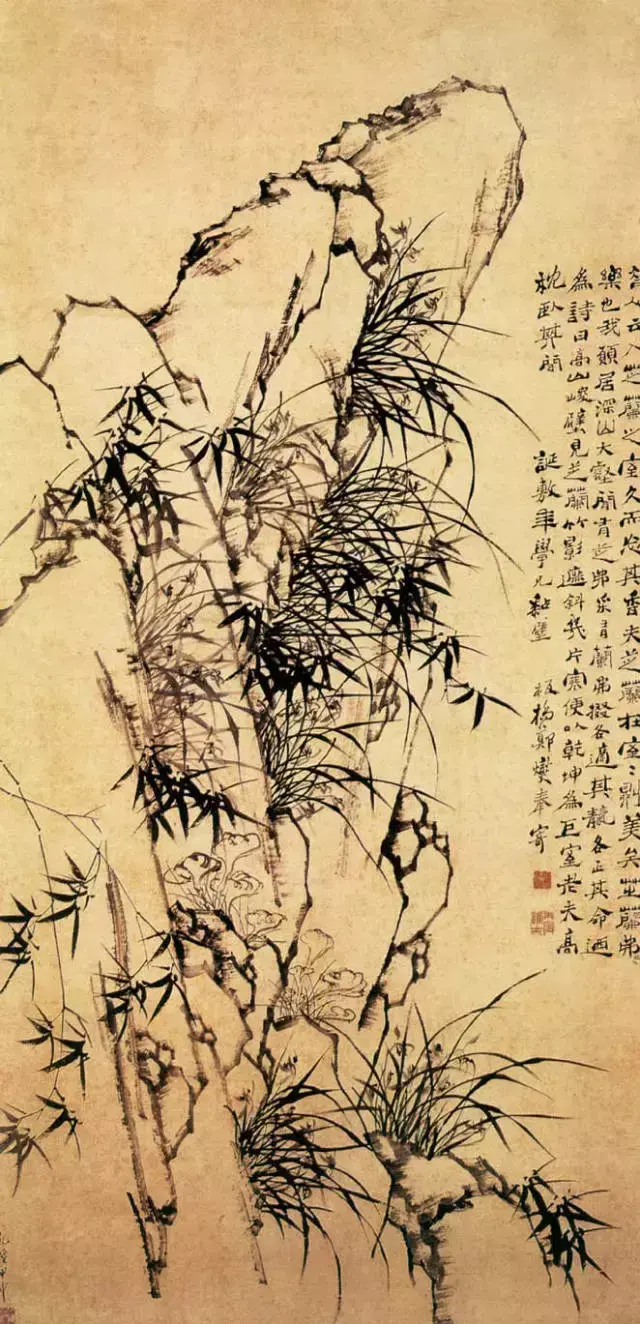 昔人云入芝蘭之室久而忘其香夫芝蘭在室〻則美矣芝蘭弗
樂也我願居深山大壑間有芝弗采有蘭弗掇各適其各正其命迺
為詩曰高山峻壁見芝蘭竹影遮斜幾片寒便以乾坤為巨室老夫高
枕臥其間 誕敷年學兄黏壁 板橋鄭燮奉寄